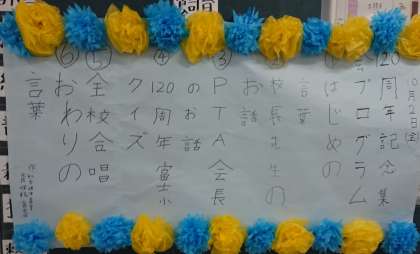 10月2日(金)
120周年記念集
会プログラム
①はじめの
言葉
②校長先生の
お話
③PTA会長
のお話
④120周年富士小
クイズ
⑤全校合唱
⑥おわりの
言葉